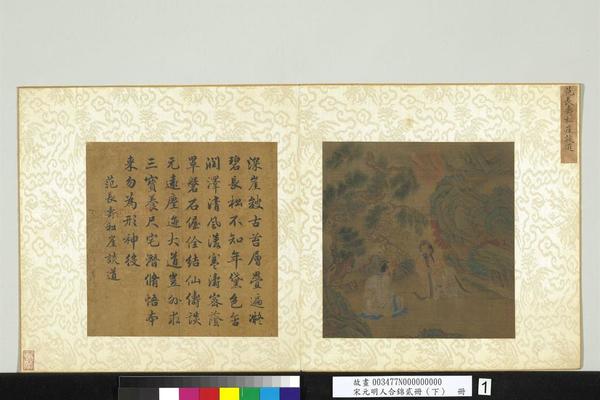 范長壽松崖談道
深崖皴古苔層疊遍凝
碧長松不知年黛色含
潤澤清風漾寒濤密蔭
罩磐石偓佺結仙儔談
元遠塵迹大道豈外求
三寶養尺宅潛脩悟本
來勿為形神役
范長壽松崖談道
故畫 003477N000000000
宋元明人合錦貳冊(下) 冊
1